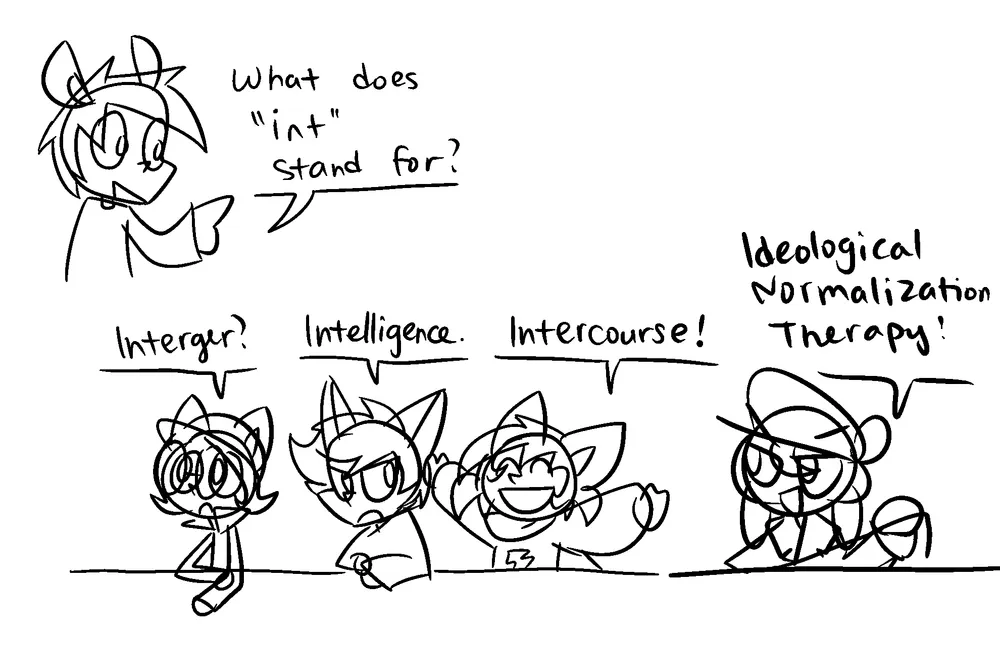 What does
"int"
stand for?
Interger?
Intelligence.
Intercourse!
Ideological
Normalization
Therapy!